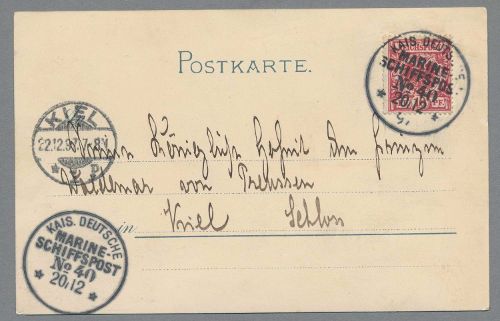 POSTKARTE.
KAIS. DEUTSCHE
MARINE-
SCHIFFSPOST
No 40
20/12
KIEL
22.12.97 7-8V
Seiner Königlichen Hoheit dem Prinzen
Waldemar von Preussen
in
Kiel Schloss
KAIS. DEUTSCHE
MARINE-
SCHIFFSPOST
No 40
20/12